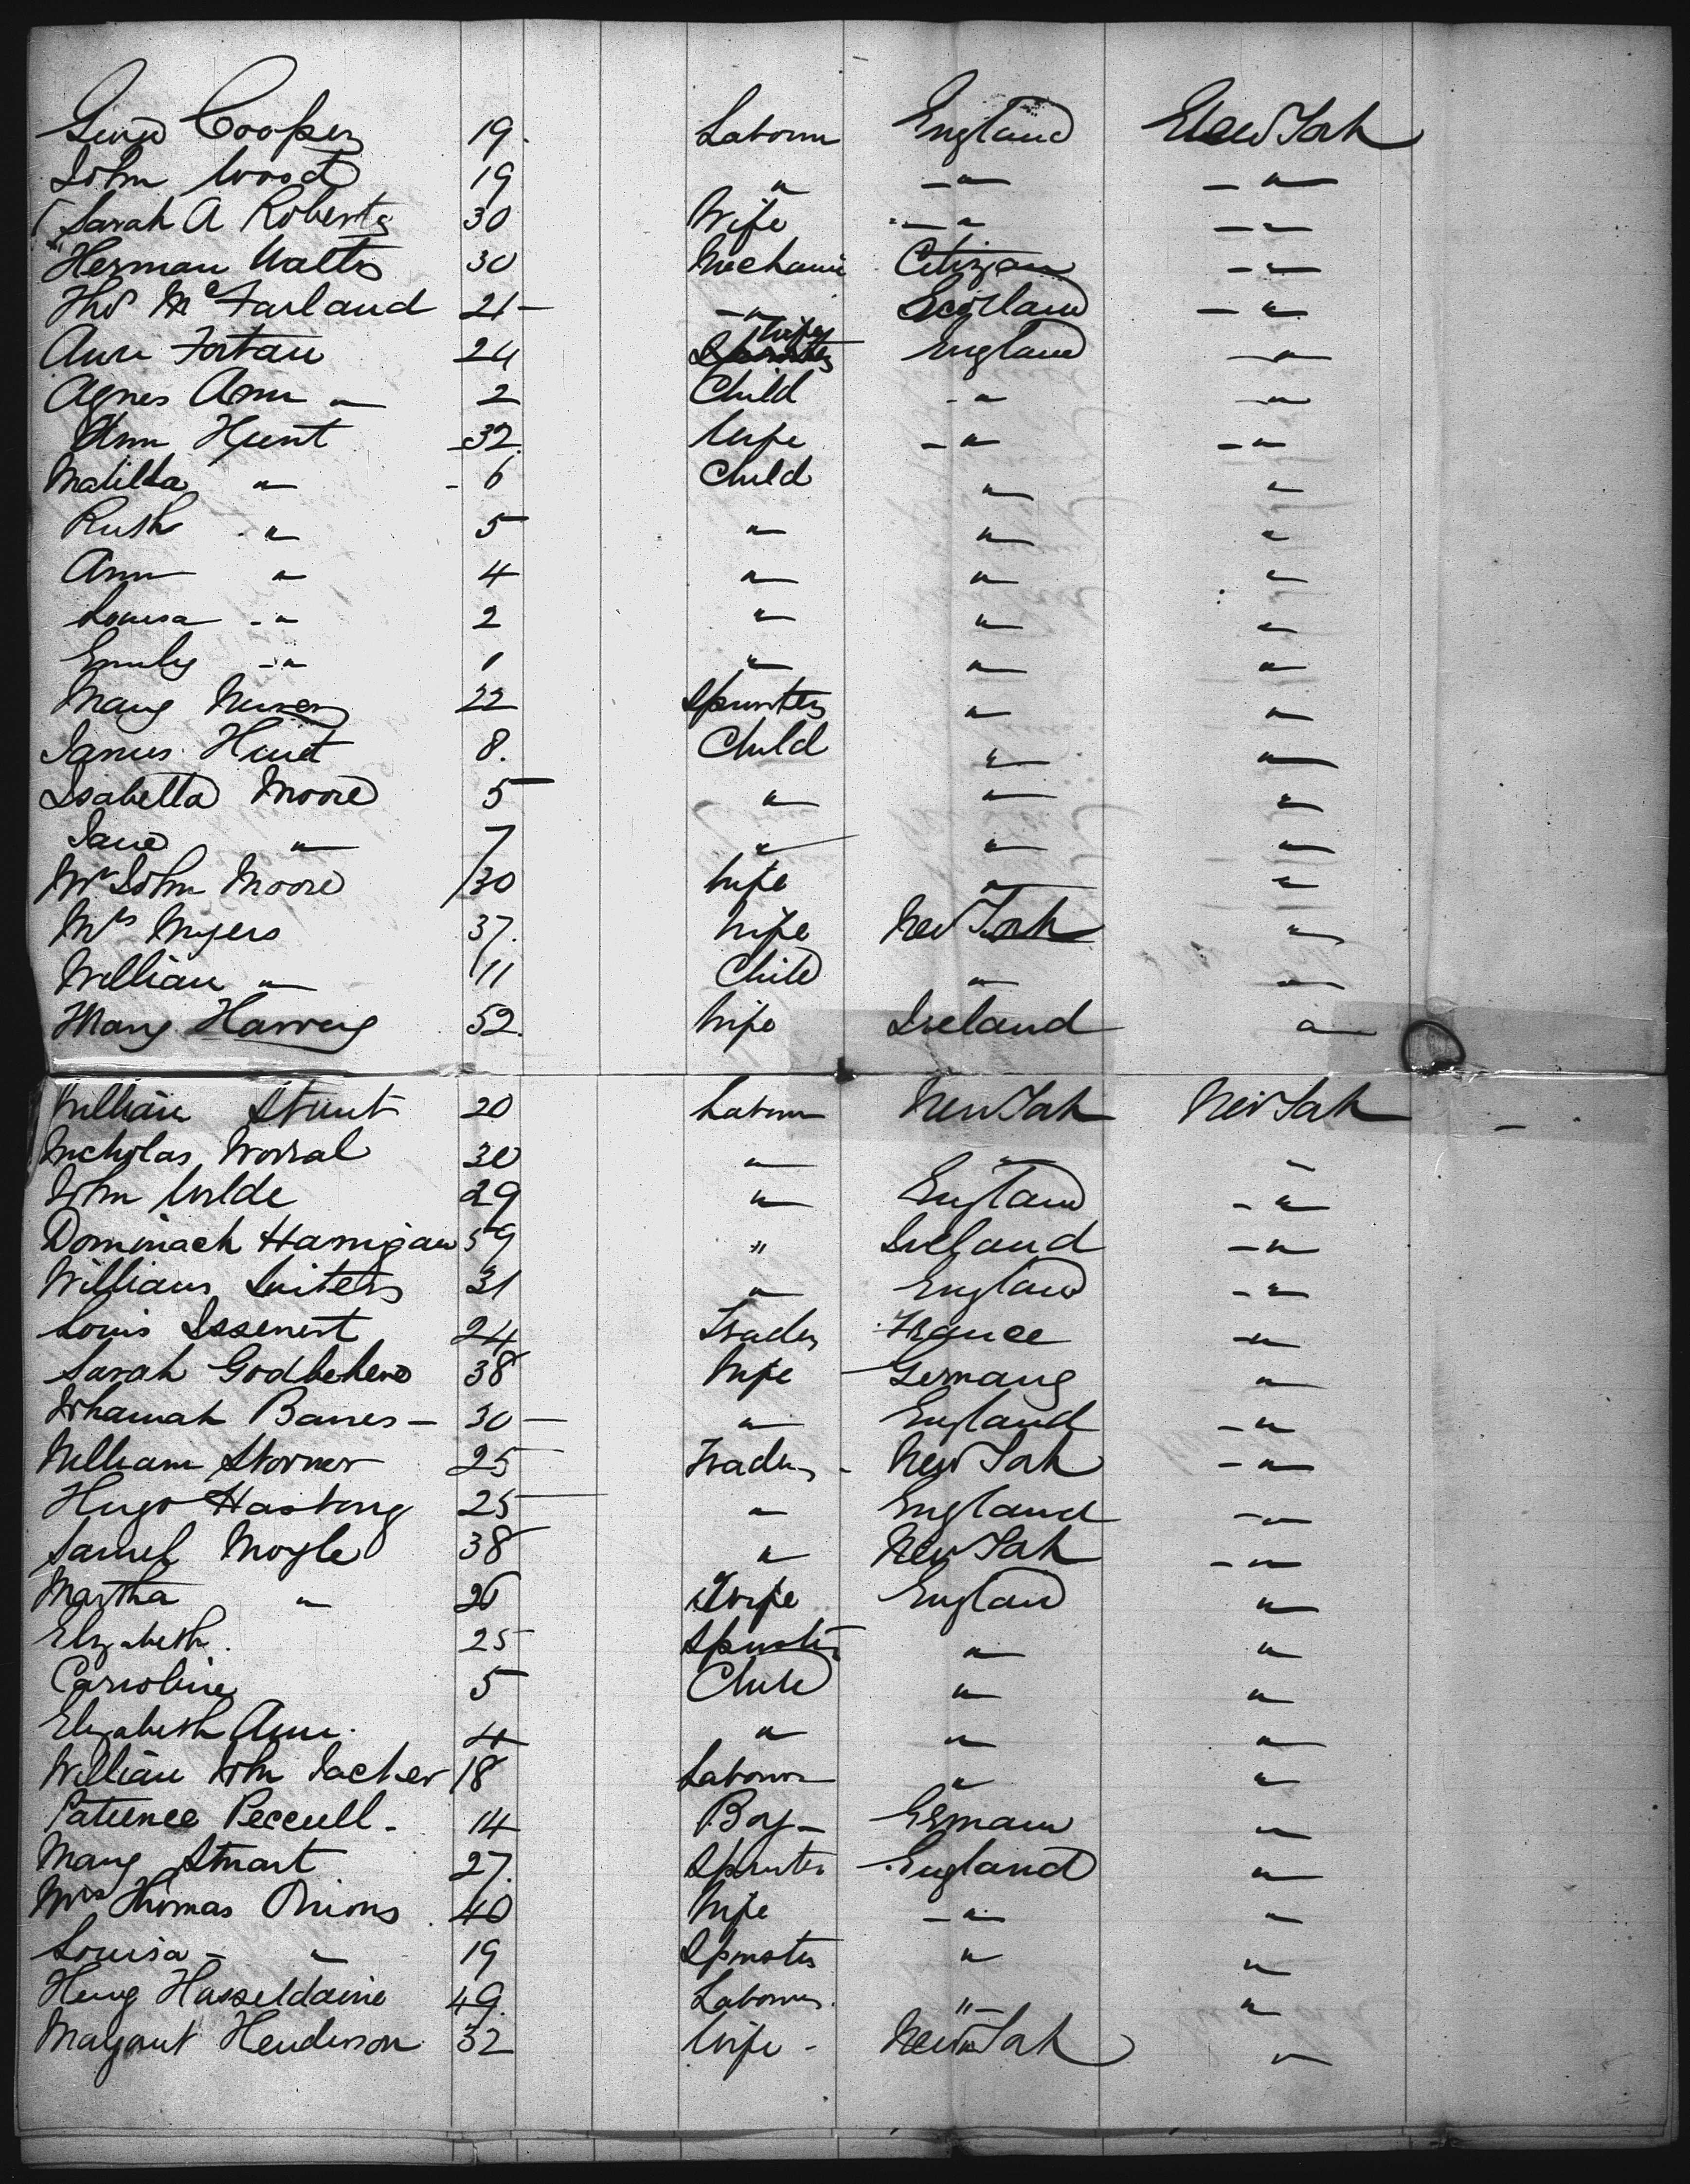 Cooper 19. Laborer England New York
John Wood 19 " — " — "
Sarah A Roberts 30 Wife — " — "
Herman Walters 30 Mechanic Citizen — "
Thos McFarland 21 — — " Scotland — "
Ann Fortau 24 Wife England — "
Agnes Ann " 2 Child - " — "
Ann Hunt 32 Wife — " — "
Matilda " 6 Child " "
Ruth " 5 " " "
Ann " 4 " " "
Louisa - " 2 " " "
Emily - " 1 " " "
Mary 22 Spinster " "
James Hunt 8. Child " "
Isabella Moore 5 " " "
Jane " 7 " " "
Mrs John Moore 30 Wife " "
Mrs Myers 37. Wife New York "
William " 11 Child " "
Mary Harvey 52. Wife Ireland "
William Stuart 20 Laborer New York New York
Nicholas Worral 30 " " "
John Wilde 29 " England - "
Dominack Hannigan 59 " Ireland - "
William Suiters 31 " England - "
Louis Issenert 24 Trader France - "
Sarah Godbehere 38 Wife Germany "
Johannah Barres — 30 — " England - "
William Storner 25 Trader - New York - "
Hugo Hastong 25 " England - "
Samuel Moyle 38 " New York - "
Martha " 26 Wife England "
Elizabeth. 25 Spinster " "
Carroline 5 Child " "
Elizabeth Ann. 4 " " "
William John Jacker 18 Laborer " "
Patience Peccull - 14 Boy - German "
Mary Stuart 27. Spinster England "
Mrs Thomas Onions 40 Wife - " "
Louisa - " 19 Spinster " "
Henry Hasseldaine 49. Laborer " "
Margaret Henderson 32 Wife - New York "